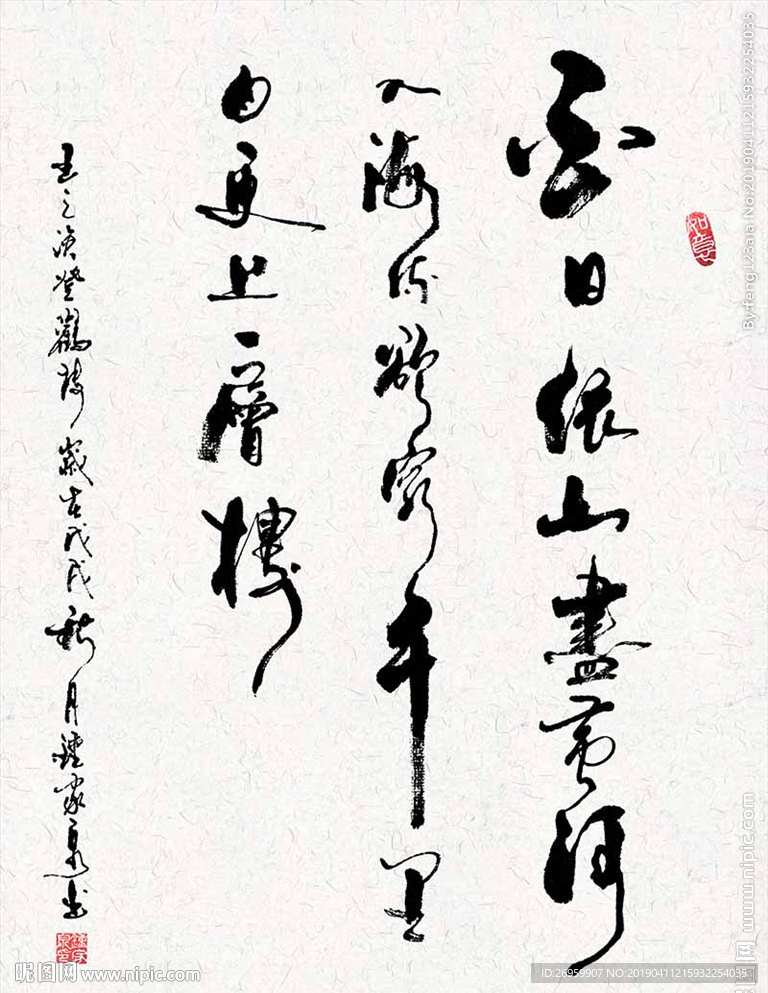 如意
白日依山盡黄河
入海流欲窮千里
目更上一層樓
王之渙登鸛樓歲在戊戌秋月鍾家泉书
By:feng123aa No:20190411215932254035
昵图网 www.nipic.com
昵图网 www.nipic.com
ID:26959907 NO:20190411215932254035